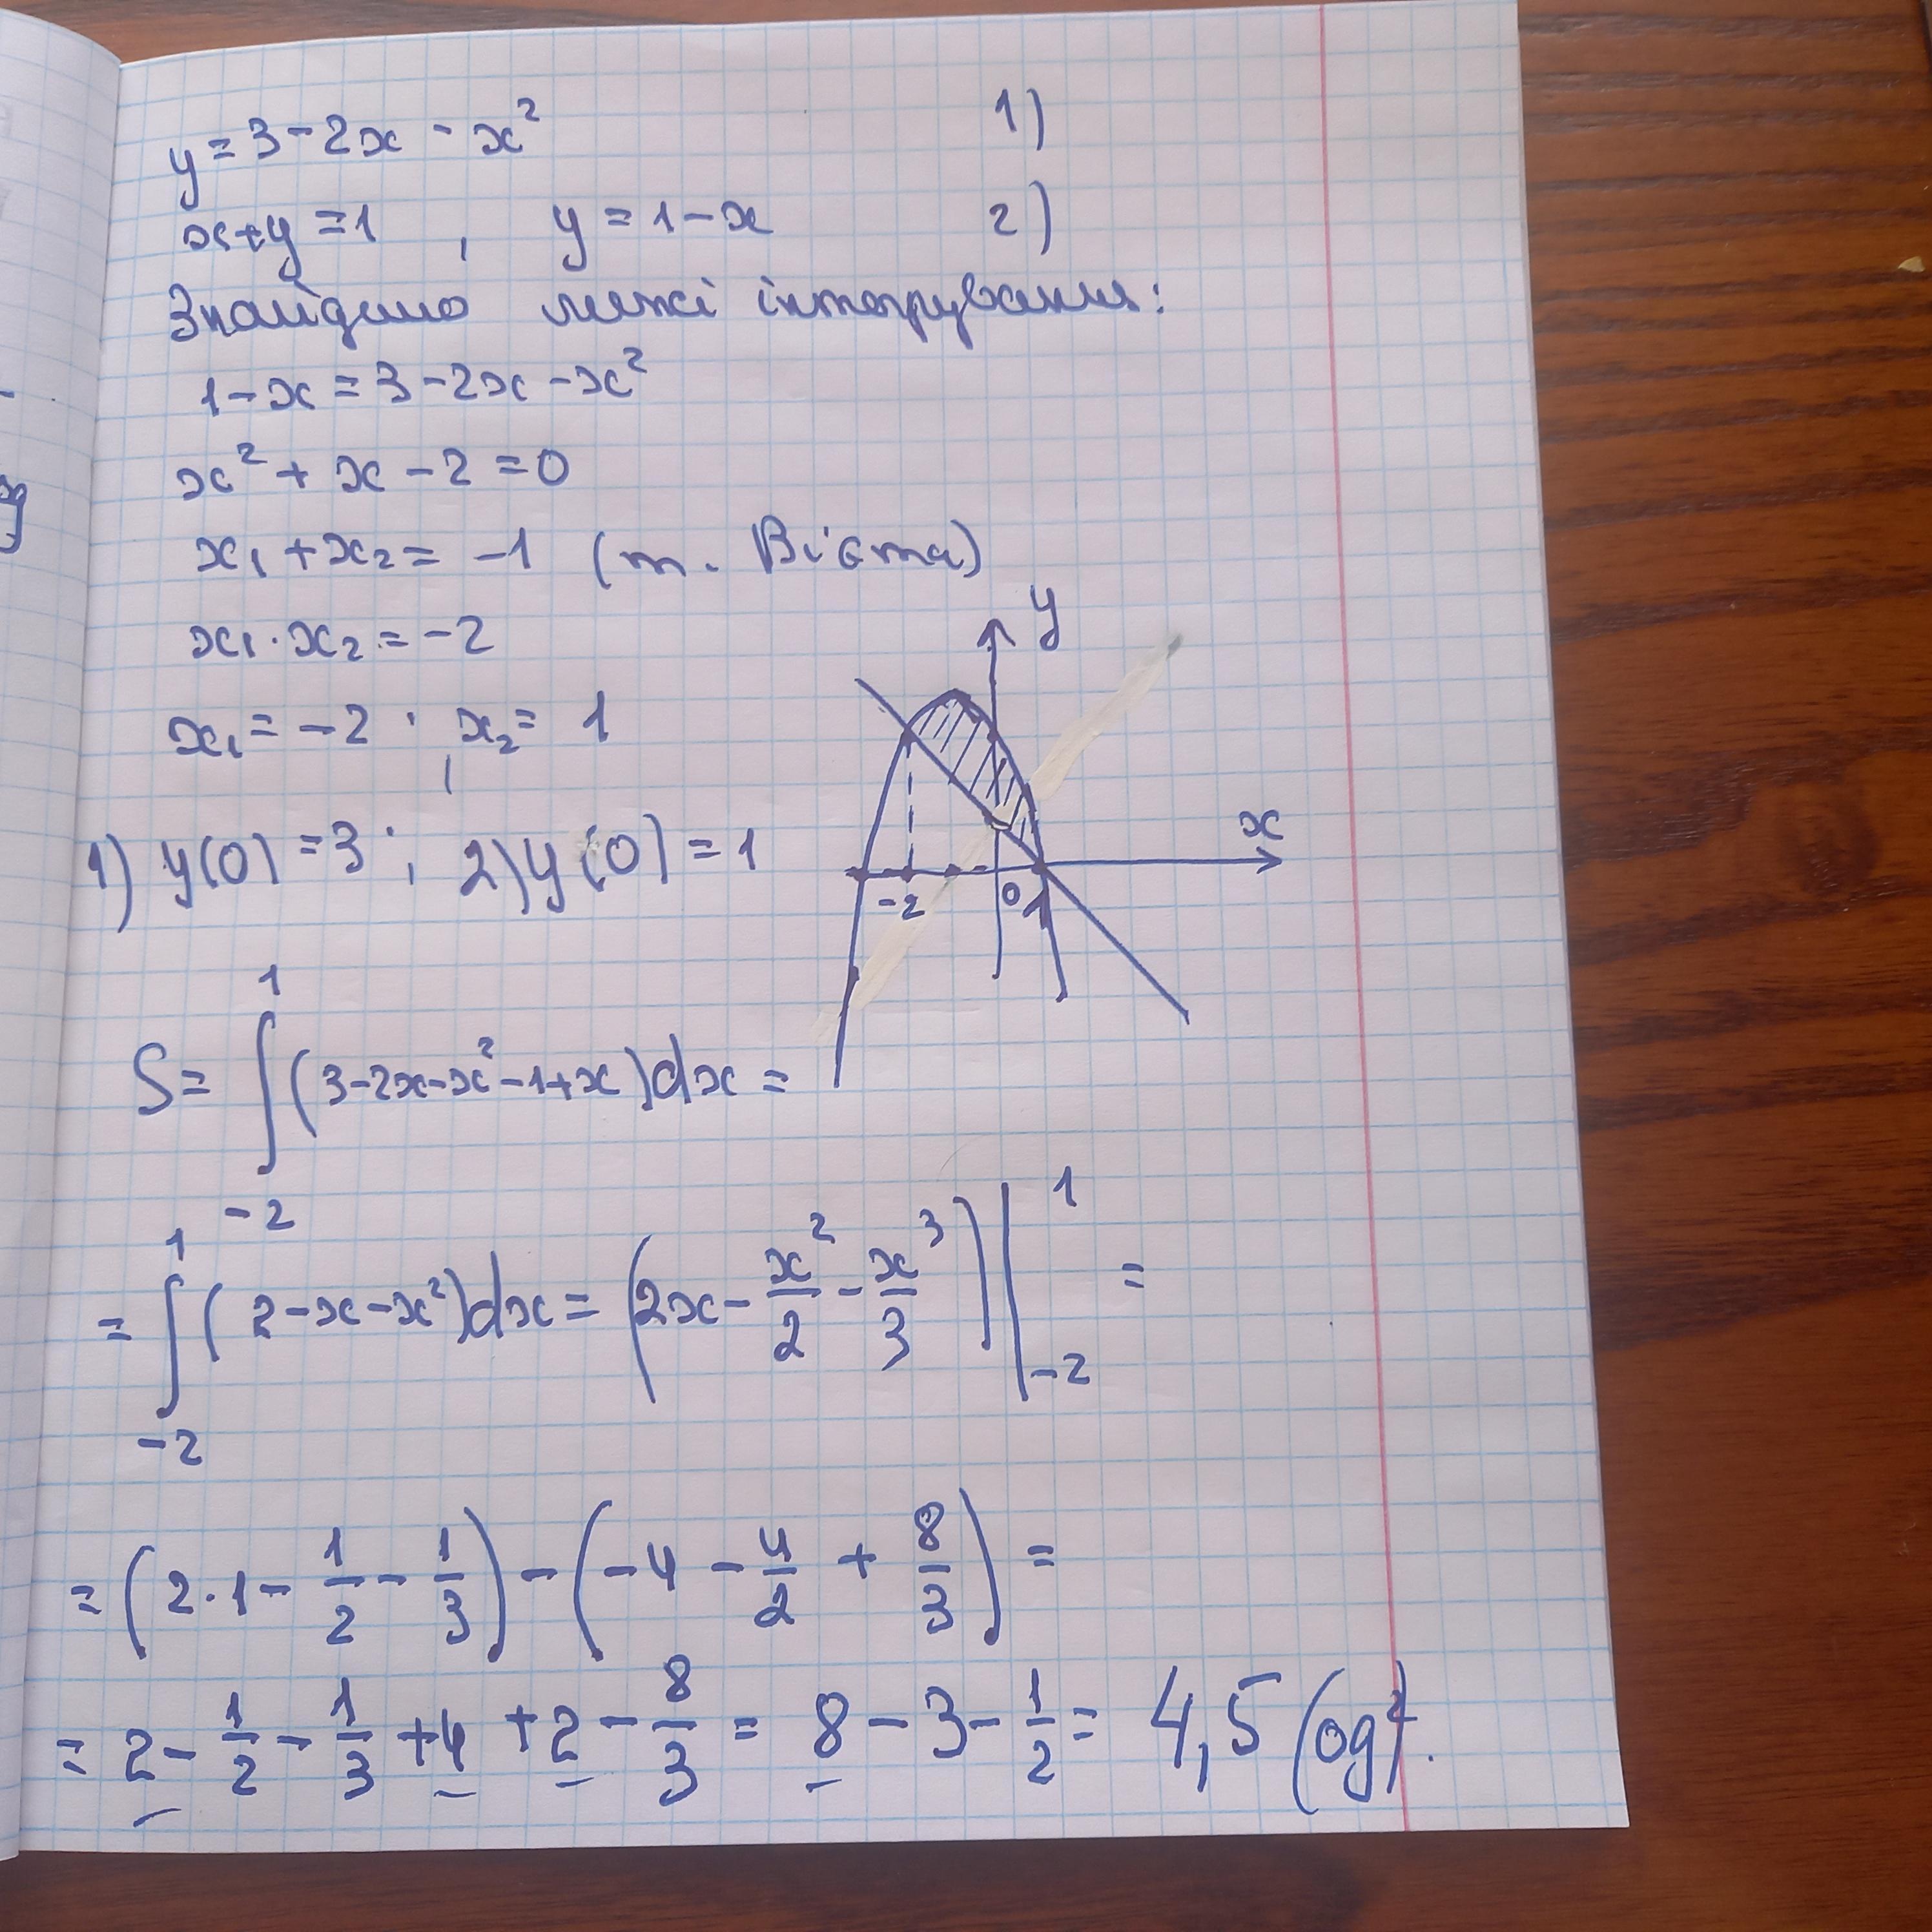 y = 3 - 2x - x² 1)
x+y = 1 , y = 1 - x 2)
Знайдемо межі інтегрування:
1 - x = 3 - 2x - x²
x² + x - 2 = 0
x₁ + x₂ = -1 (т. Вієта)
x₁ · x₂ = -2
x₁ = -2 ; x₂ = 1
1) y(0) = 3 ; 2) y(0) = 1
y
x
-2 0 1
S = ∫₋₂¹ (3 - 2x - x² - 1 + x)dx =
= ∫₋₂¹ (2 - x - x²)dx = (2x - x²/2 - x³/3) |₋₂¹ =
= (2·1 - 1/2 - 1/3) - (-4 - 4/2 + 8/3) =
= 2 - 1/2 - 1/3 + 4 + 2 - 8/3 = 8 - 3 - 1/2 = 4,5 (од²).